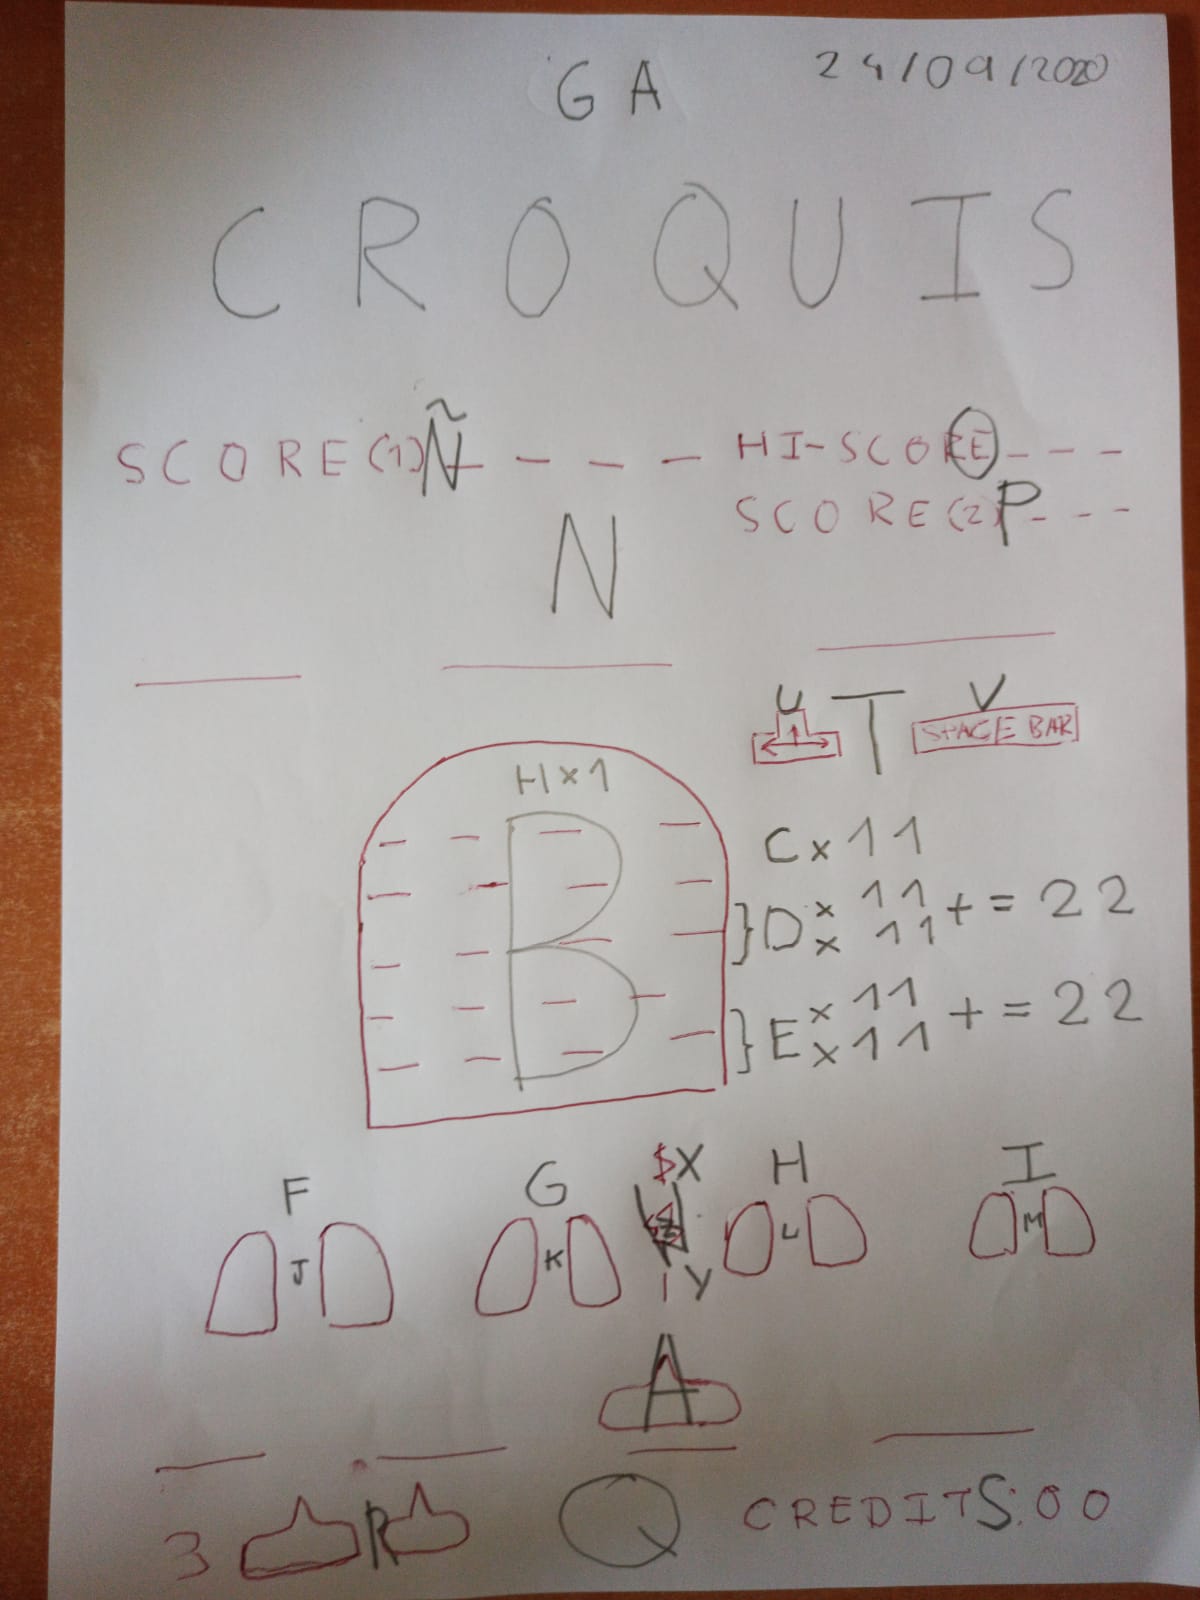 GA 24/09/2020
CROQUIS
SCORE(1) Ñ _ _ _ _ HI-SCORE _ _ _
SCORE(2) P _ _ _
N
U T V
SPACE BAR
H x 1
B
C x 11
} D x 11 x 11 + = 22
} E x 11 x 11 + = 22
F G $ X H I
J K Z L M
Y
A
3 R Q CREDITS:00